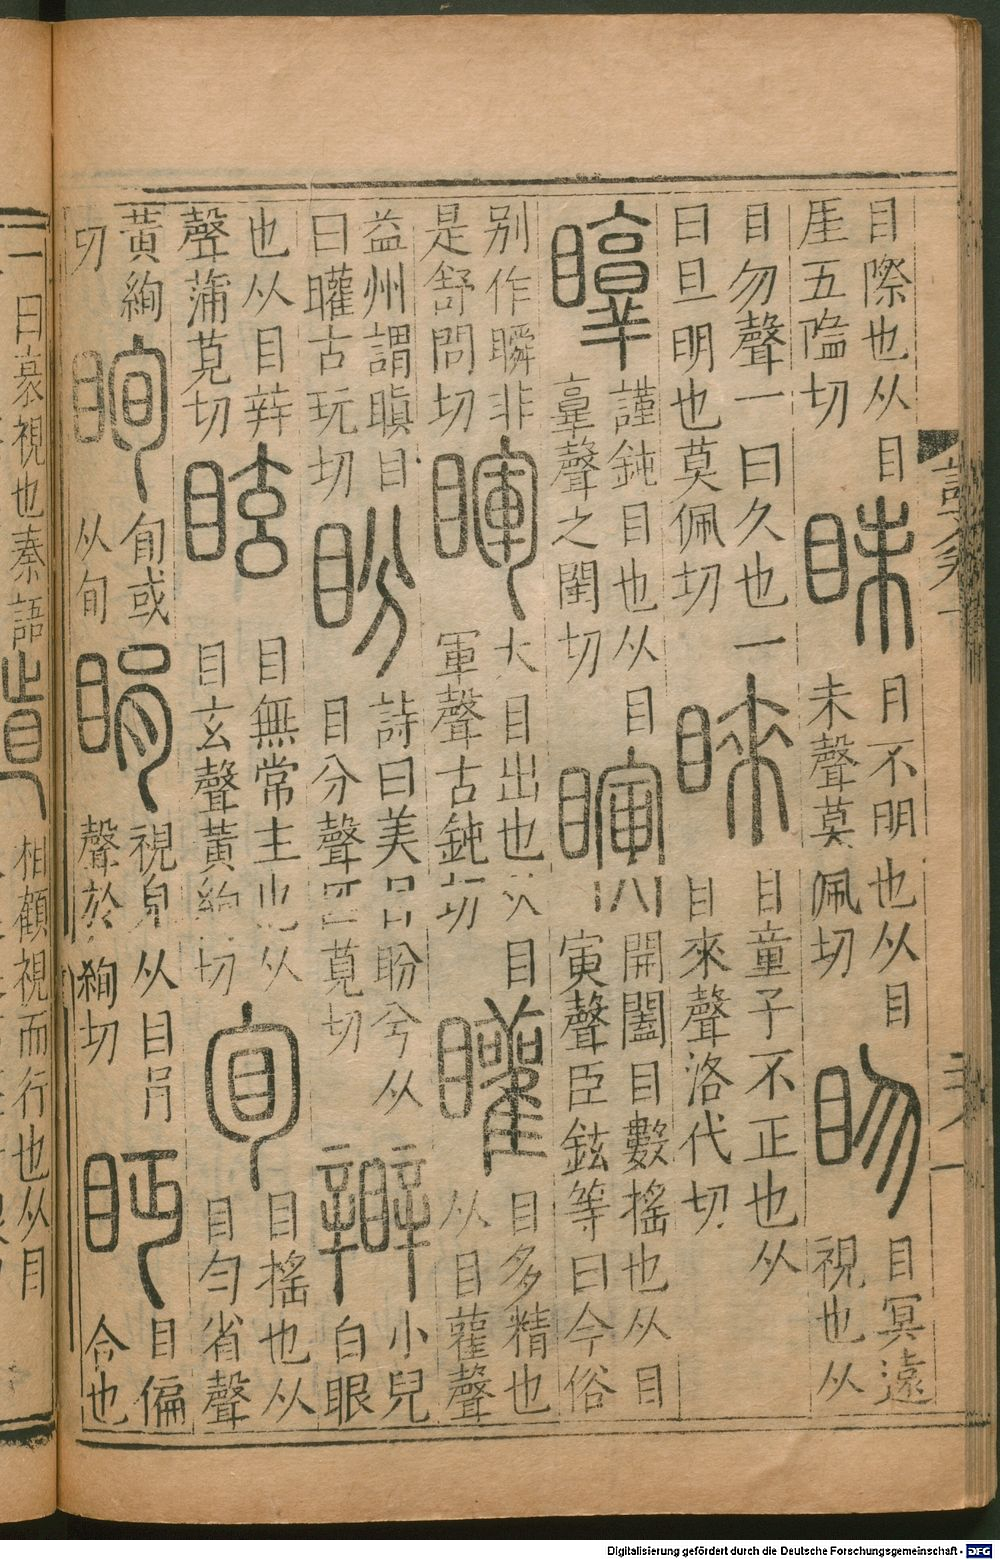 目際也从目
厓五隘切
眛
目不明也从目
未聲莫佩切
目冥遠
視也从
目勿聲一曰久也一
曰旦明也莫佩切
睞
目童子不正也从
目來聲洛代切
謹鈍目也从目
聲之閏切
瞚
開闔目數搖也从目
寅聲臣鉉等曰今俗
別作瞬非
是舒問切
睴
大目出也从目
軍聲古鈍切
矔
目多精也
从目雚聲
益州謂瞋目
曰矔古玩切
盼
詩曰美目盼兮从
目分聲匹莧切
小兒
白眼
也从目辡
聲蒲莧切
眩
目無常主也从
目玄聲黃絢切
目搖也从
目勻省聲
黃絢
切
眴
旬或
从旬
睊
視皃从目肙
聲於絢切
眄
目偏
合也
一曰衺視也秦語
相顧視而行也从目
Digitalisierung gefördert durch die Deutsche Forschungsgemeinschaft - DFG